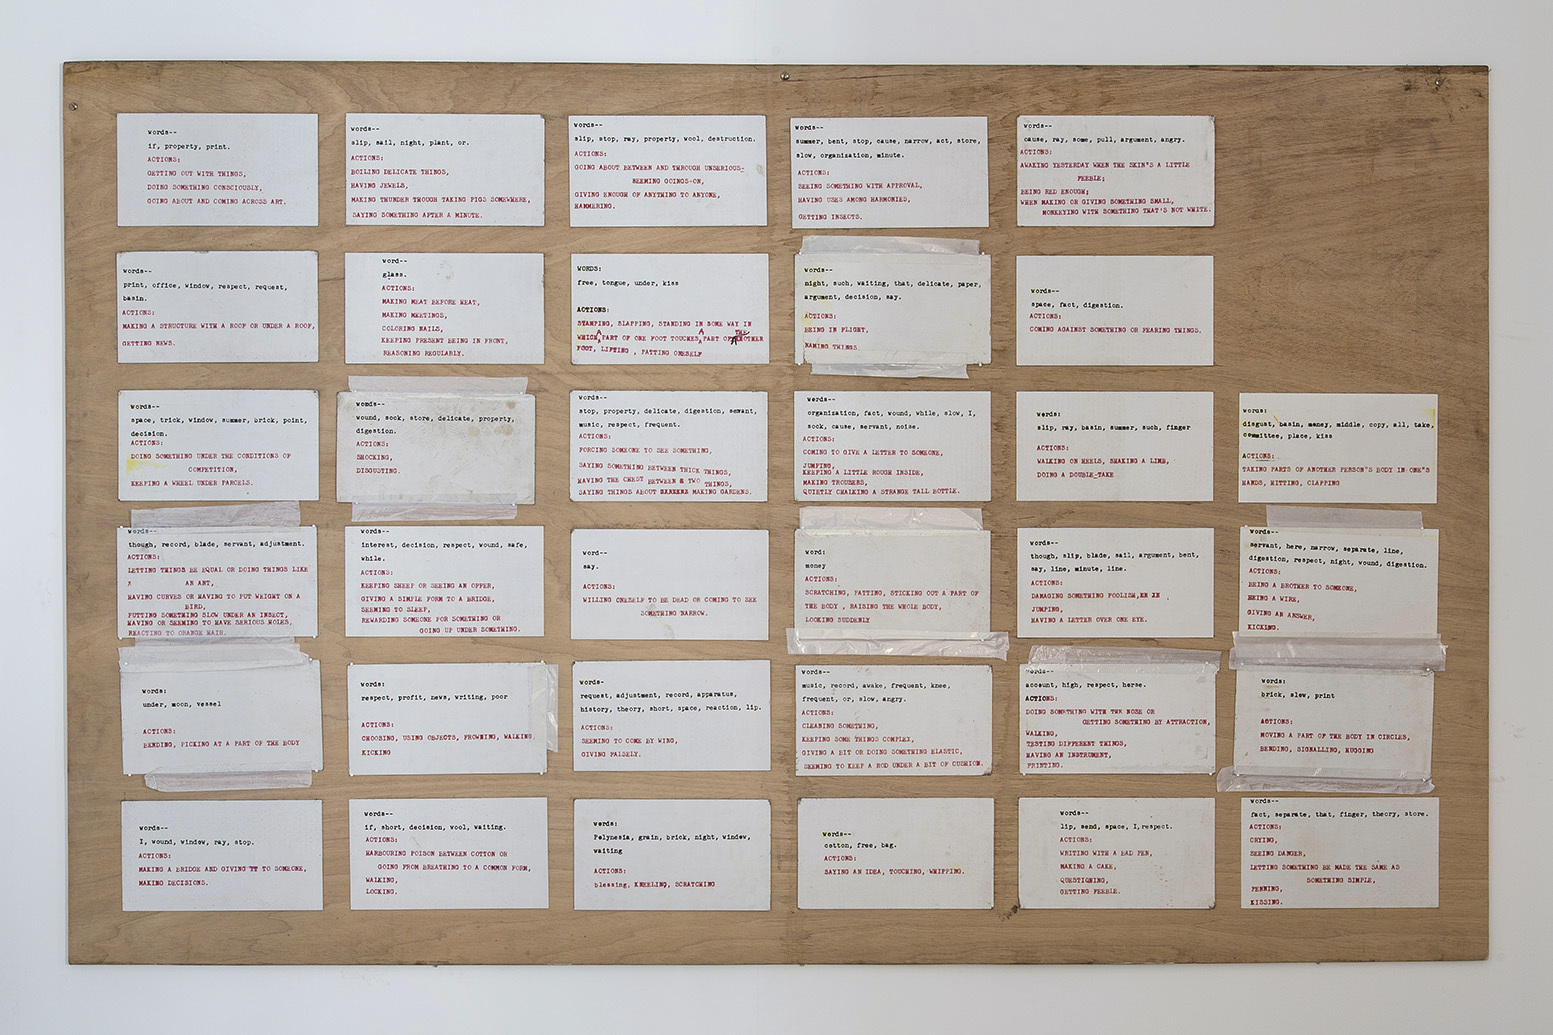 words--
if, property, print.
ACTIONS:
GETTING OUT WITH THINGS,
DOING SOMETHING CONSCIOUSLY,
GOING ABOUT AND COMING ACROSS ART.
words--
slip, sail, night, plant, or.
ACTIONS:
BOILING DELICATE THINGS,
HAVING JEWELS,
MAKING THUNDER THOUGH TAKING PIGS SOMEWHERE,
SAYING SOMETHING AFTER A MINUTE.
words--
slip, stop, ray, property, wool, destruction.
ACTIONS:
GOING ABOUT BETWEEN AND THROUGH UNSERIOUS-
SEEMING GOINGS-ON,
GIVING ENOUGH OF ANYTHING TO ANYONE,
HAMMERING.
words--
summer, bent, stop, cause, narrow, act, store,
slow, organization, minute.
ACTIONS:
SEEING SOMETHING WITH APPROVAL,
HAVING USES AMONG HARMONIES,
GETTING INSECTS.
words--
cause, ray, some, pull, argument, angry.
ACTIONS:
AWAKING YESTERDAY WHEN THE SKIN'S A LITTLE
FEEBLE;
BEING RED ENOUGH;
WHEN MAKING OR GIVING SOMETHING SMALL,
MONKEYING WITH SOMETHING THAT'S NOT WHITE.
words--
print, office, window, respect, request,
basin.
ACTIONS:
MAKING A STRUCTURE WITH A ROOF OR UNDER A ROOF,
GETTING NEWS.
word--
glass.
ACTIONS:
MAKING MEAT BEFORE HEAT,
MAKING MEETINGS,
COLORING NAILS,
KEEPING PRESENT BEING IN FRONT,
REASONING REGULARLY.
WORDS:
free, tongue, under, kiss
ACTIONS:
STAMPING, SLAPPING, STANDING IN SOME WAY IN
WHICH PART OF ONE FOOT TOUCHES PART OF THE OTHER
FOOT, LIFTING , PATTING ONESELF
words--
night, such, waiting, that, delicate, paper,
argument, decision, say.
ACTIONS:
BEING IN FLIGHT,
NAMING THINGS.
words--
space, fact, digestion.
ACTIONS:
COMING AGAINST SOMETHING OR FEARING THINGS.
words--
space, trick, window, summer, brick, point,
decision.
ACTIONS:
DOING SOMETHING UNDER THE CONDITIONS OF
COMPETITION,
KEEPING A WHEEL UNDER PARCELS.
words--
wound, sock, store, delicate, property,
digestion.
ACTIONS:
SHOCKING,
DISGUSTING.
words--
stop, property, delicate, digestion, servant,
music, respect, frequent.
ACTIONS:
FORCING SOMEONE TO SEE SOMETHING,
SAYING SOMETHING BETWEEN THICK THINGS,
HAVING THE CHEST BETWEEN TWO THINGS,
SAYING THINGS ABOUT MAKING GARDENS.
words--
organization, fact, wound, while, slow, I,
sock, cause, servant, noise.
ACTIONS:
COMING TO GIVE A LETTER TO SOMEONE,
JUMPING,
KEEPING A LITTLE ROUGH INSIDE,
MAKING TROUSERS,
QUIETLY CHALKING A STRANGE TALL BOTTLE.
words:
slip, ray, basin, summer, such, finger
ACTIONS:
WALKING ON HEELS, SHAKING A LIMB,
DOING A DOUBLE-TAKE
words:
disgust, basin, money, middle, copy, all, take,
committee, place, kiss
ACTIONS:
TAKING PARTS OF ANOTHER PERSON'S BODY IN ONE'S
HANDS, HITTING, CLAPPING
words--
though, record, blade, servant, adjustment.
ACTIONS:
LETTING THINGS BE EQUAL OR DOING THINGS LIKE
AN ANT,
HAVING CURVES OR HAVING TO PUT WEIGHT ON A
BIRD,
PUTTING SOMETHING SLOW UNDER AN INSECT,
HAVING OR SEEMING TO HAVE SERIOUS HOLES,
REACTING TO ORANGE HAIR.
words--
interest, decision, respect, wound, safe,
while.
ACTIONS:
KEEPING SHEEP OR SEEING AN OFFER,
GIVING A SIMPLE FORM TO A BRIDGE,
SEEMING TO SLEEP,
REWARDING SOMEONE FOR SOMETHING OR
GOING UP UNDER SOMETHING.
word--
say.
ACTIONS:
WILLING ONESELF TO BE DEAD OR COMING TO SEE
SOMETHING NARROW.
word:
money
ACTIONS:
SCRATCHING, PATTING, STICKING OUT A PART OF
THE BODY , RAISING THE WHOLE BODY,
LOOKING SUDDENLY
words--
though, slip, blade, sail, argument, bent,
say, line, minute, line.
ACTIONS:
DAMAGING SOMETHING FOOLISH,
JUMPING,
HAVING A LETTER OVER ONE EYE.
words--
servant, here, narrow, separate, line,
digestion, respect, night, wound, digestion.
ACTIONS:
BEING A BROTHER TO SOMEONE,
BEING A WIRE,
GIVING AN ANSWER,
KICKING.
words:
under, moon, vessel
ACTIONS:
BENDING, PICKING AT A PART OF THE BODY
words:
respect, profit, news, writing, poor
ACTIONS:
CHOOSING, USING OBJECTS, FROWNING, WALKING,
KICKING
words-
request, adjustment, record, apparatus,
history, theory, short, space, reaction, lip.
ACTIONS:
SEEMING TO COME BY WING,
GIVING FALSELY.
words--
music, record, awake, frequent, knee,
frequent, or, slow, angry.
ACTIONS:
CLEANING SOMETHING,
KEEPING SOME THINGS COMPLEX,
GIVING A BIT OR DOING SOMETHING ELASTIC,
SEEMING TO KEEP A ROD UNDER A BIT OF CUSHION.
words--
account, high, respect, horse.
ACTIONS:
DOING SOMETHING WITH THE NOSE OR
GETTING SOMETHING BY ATTRACTION,
WALKING,
TESTING DIFFERENT THINGS,
HAVING AN INSTRUMENT,
PRINTING.
words:
brick, slow, print
ACTIONS:
MOVING A PART OF THE BODY IN CIRCLES,
BENDING, SIGNALLING, HUGGING
words--
I, wound, window, ray, stop.
ACTIONS:
MAKING A BRIDGE AND GIVING IT TO SOMEONE,
MAKING DECISIONS.
words--
if, short, decision, wool, waiting.
ACTIONS:
HARBOURING POISON BETWEEN COTTON OR
GOING FROM BREATHING TO A COMMON FORM,
WALKING,
LOCKING.
words:
Polynesia, grain, brick, night, window,
waiting
ACTIONS:
blessing, KNEELING, SCRATCHING
words--
cotton, free, bag.
ACTIONS:
SAYING AN IDEA, TOUCHING, WHIPPING.
words--
lip, send, space, I,respect.
ACTIONS:
WRITING WITH A BAD PEN,
MAKING A CAKE,
QUESTIONING,
GETTING FEEBLE.
words--
fact, separate, that, finger, theory, store.
ACTIONS:
CRYING,
SEEING DANGER,
LETTING SOMETHING BE MADE THE SAME AS
SOMETHING SIMPLE,
PENNING,
KISSING.